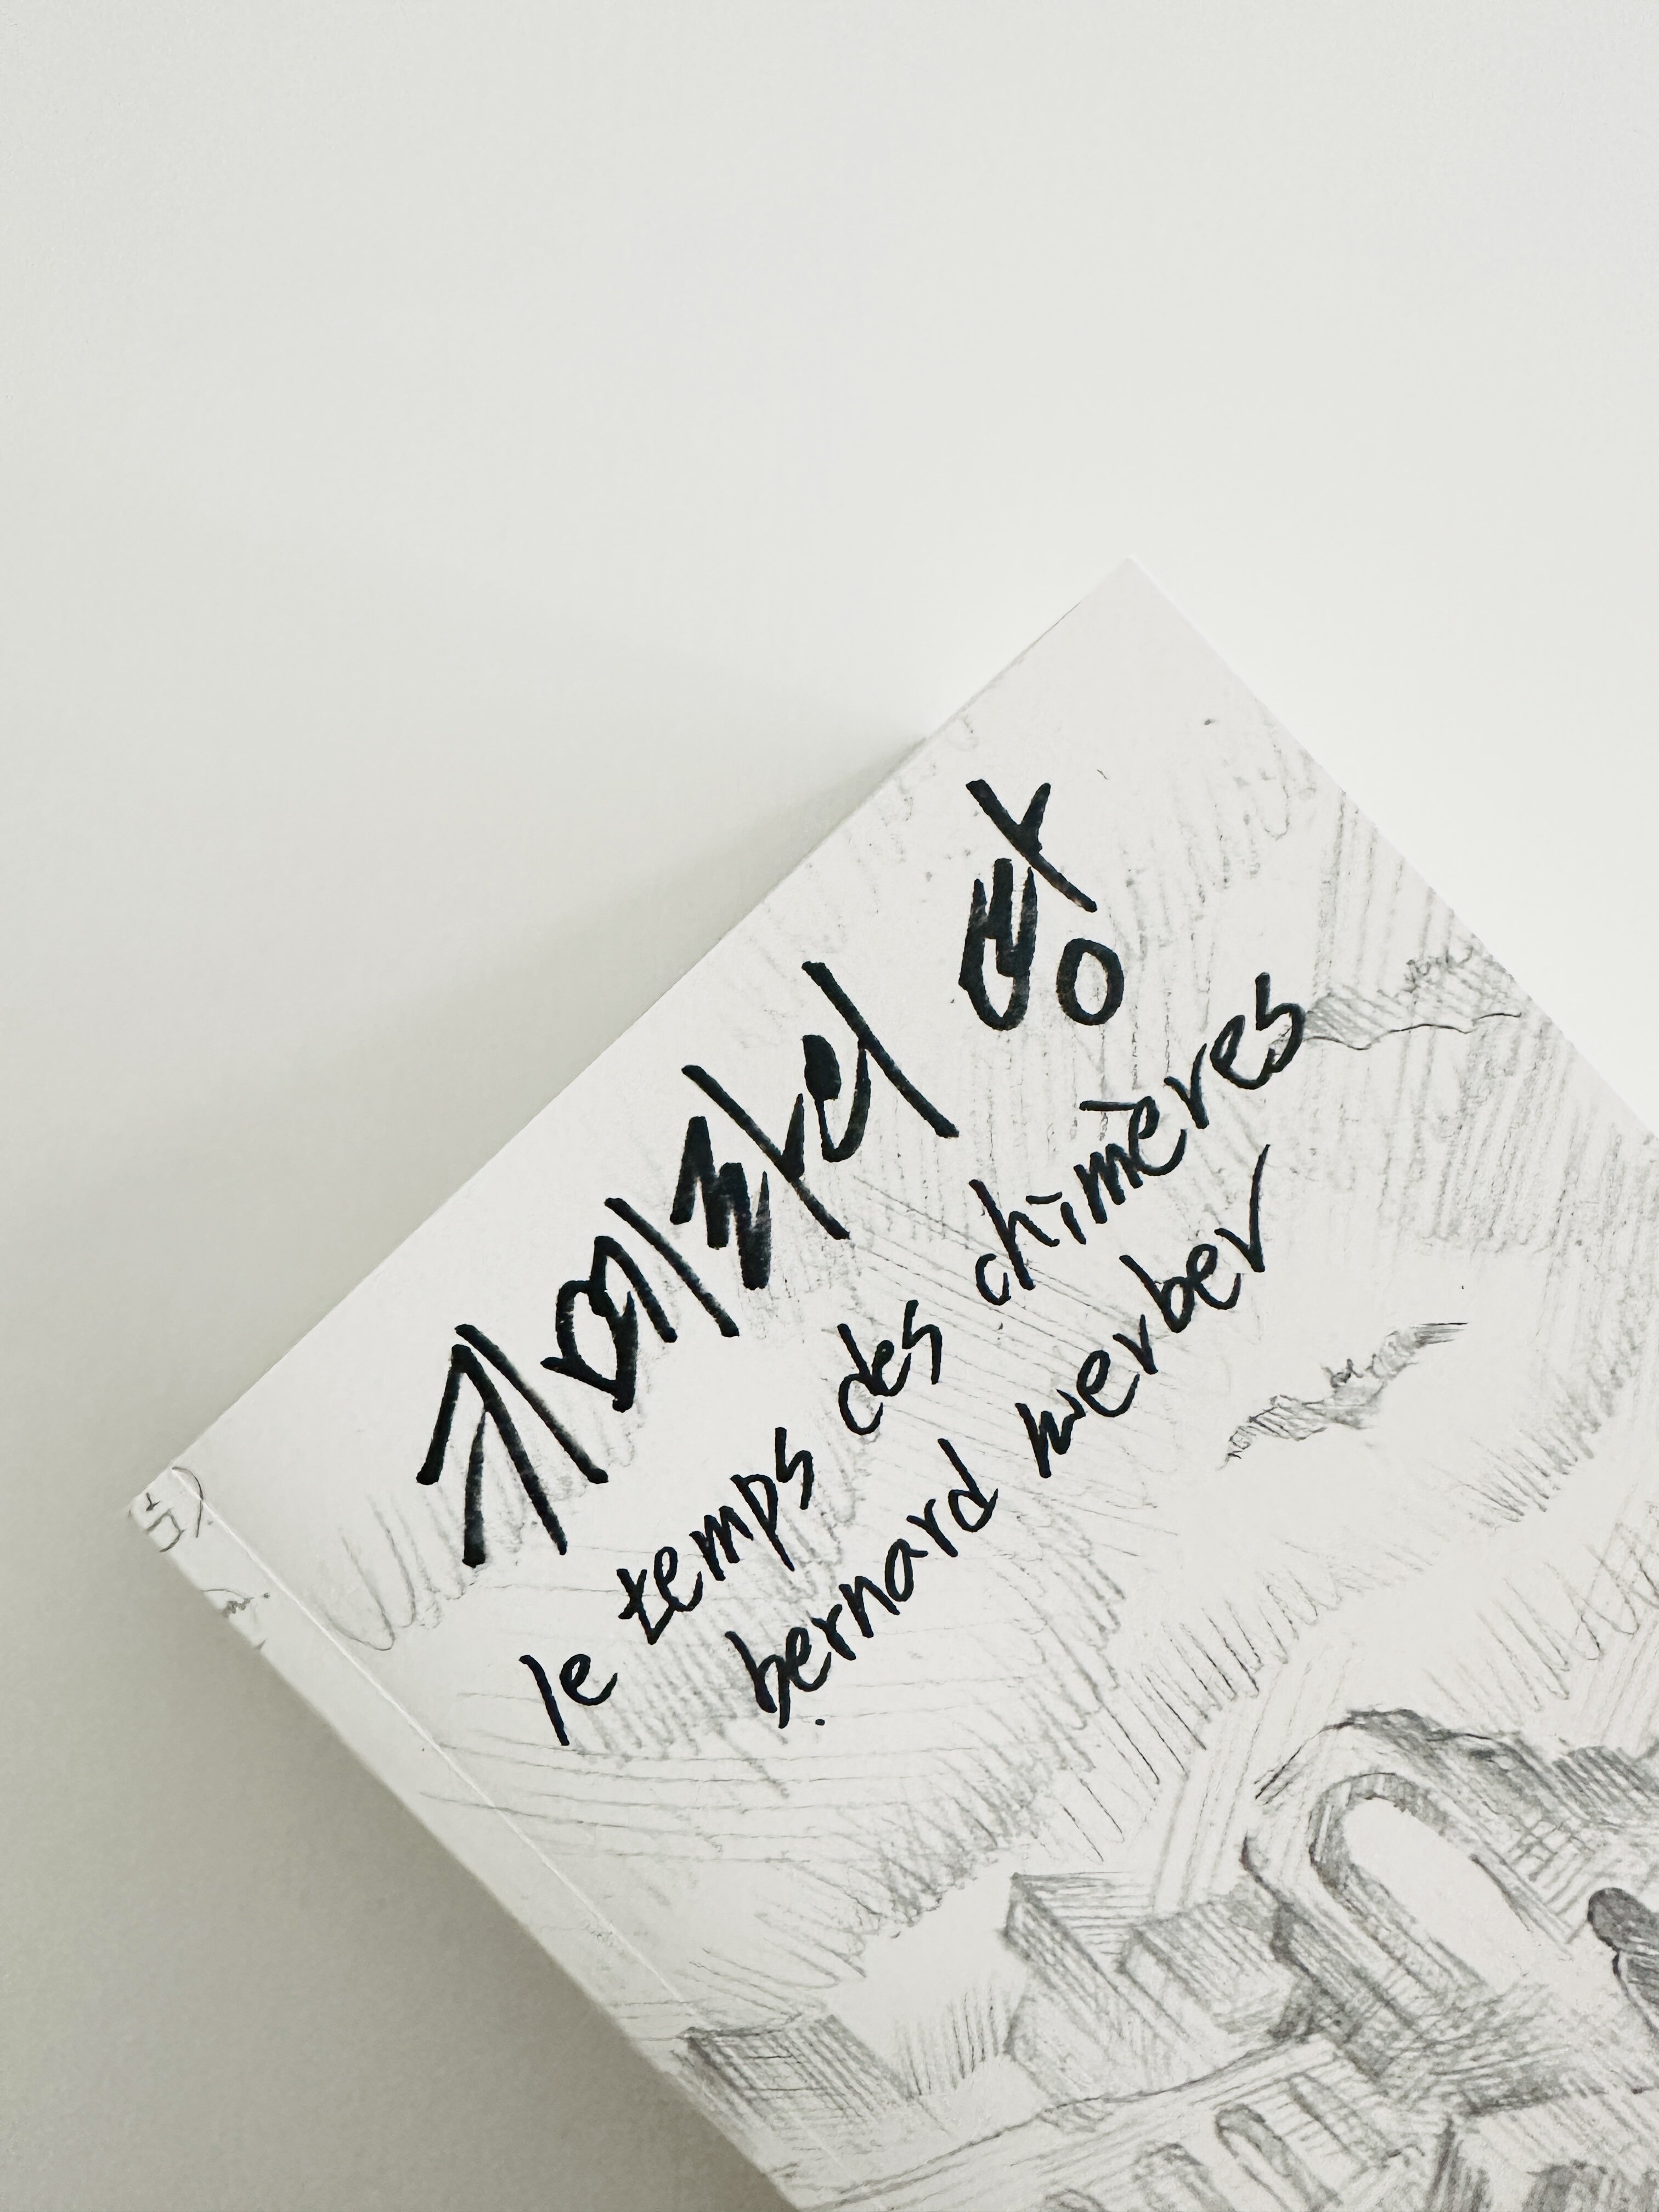 키메라의 땅
le temps des chimères
bernard werber